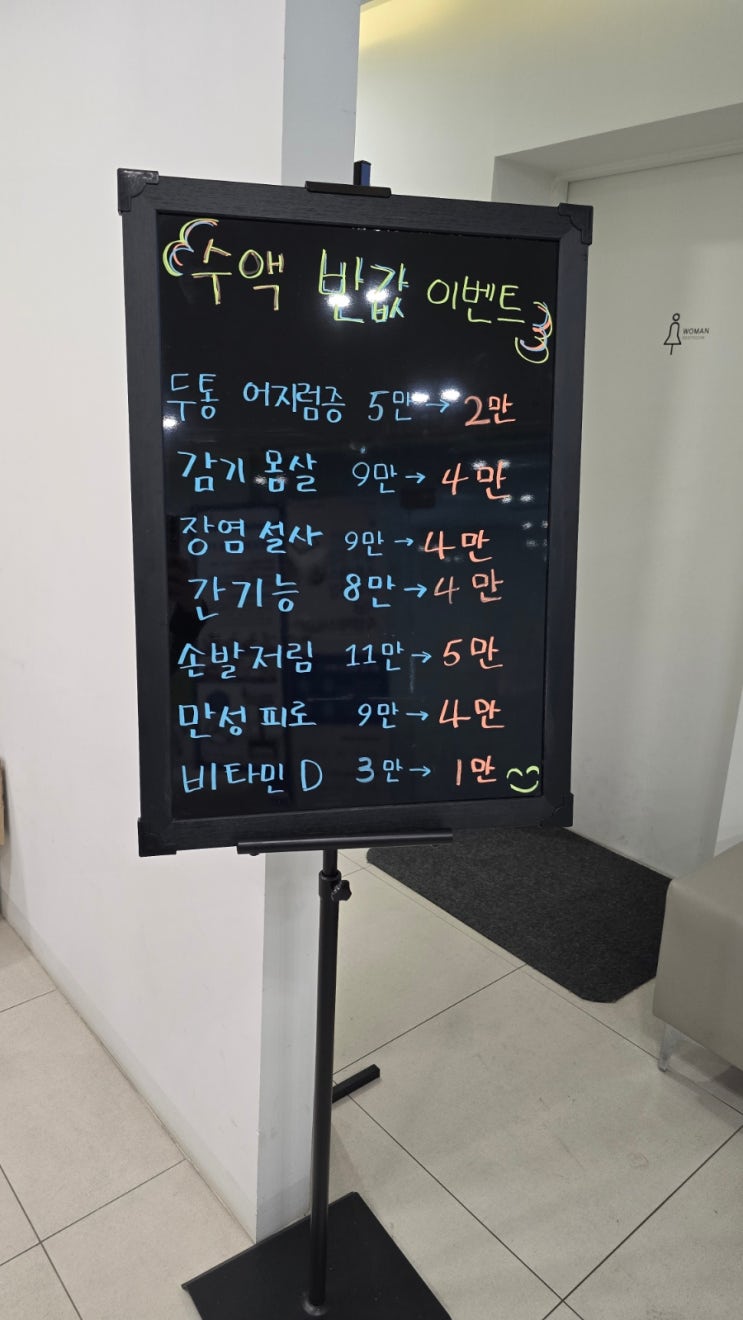 수액 반값 이벤트
두통 어지럼증 5만→2만
감기 몸살 9만→4만
장염 설사 9만→4만
간기능 8만→4만
손발저림 11만→5만
만성 피로 9만→4만
비타민 D 3만→1만
WOMAN